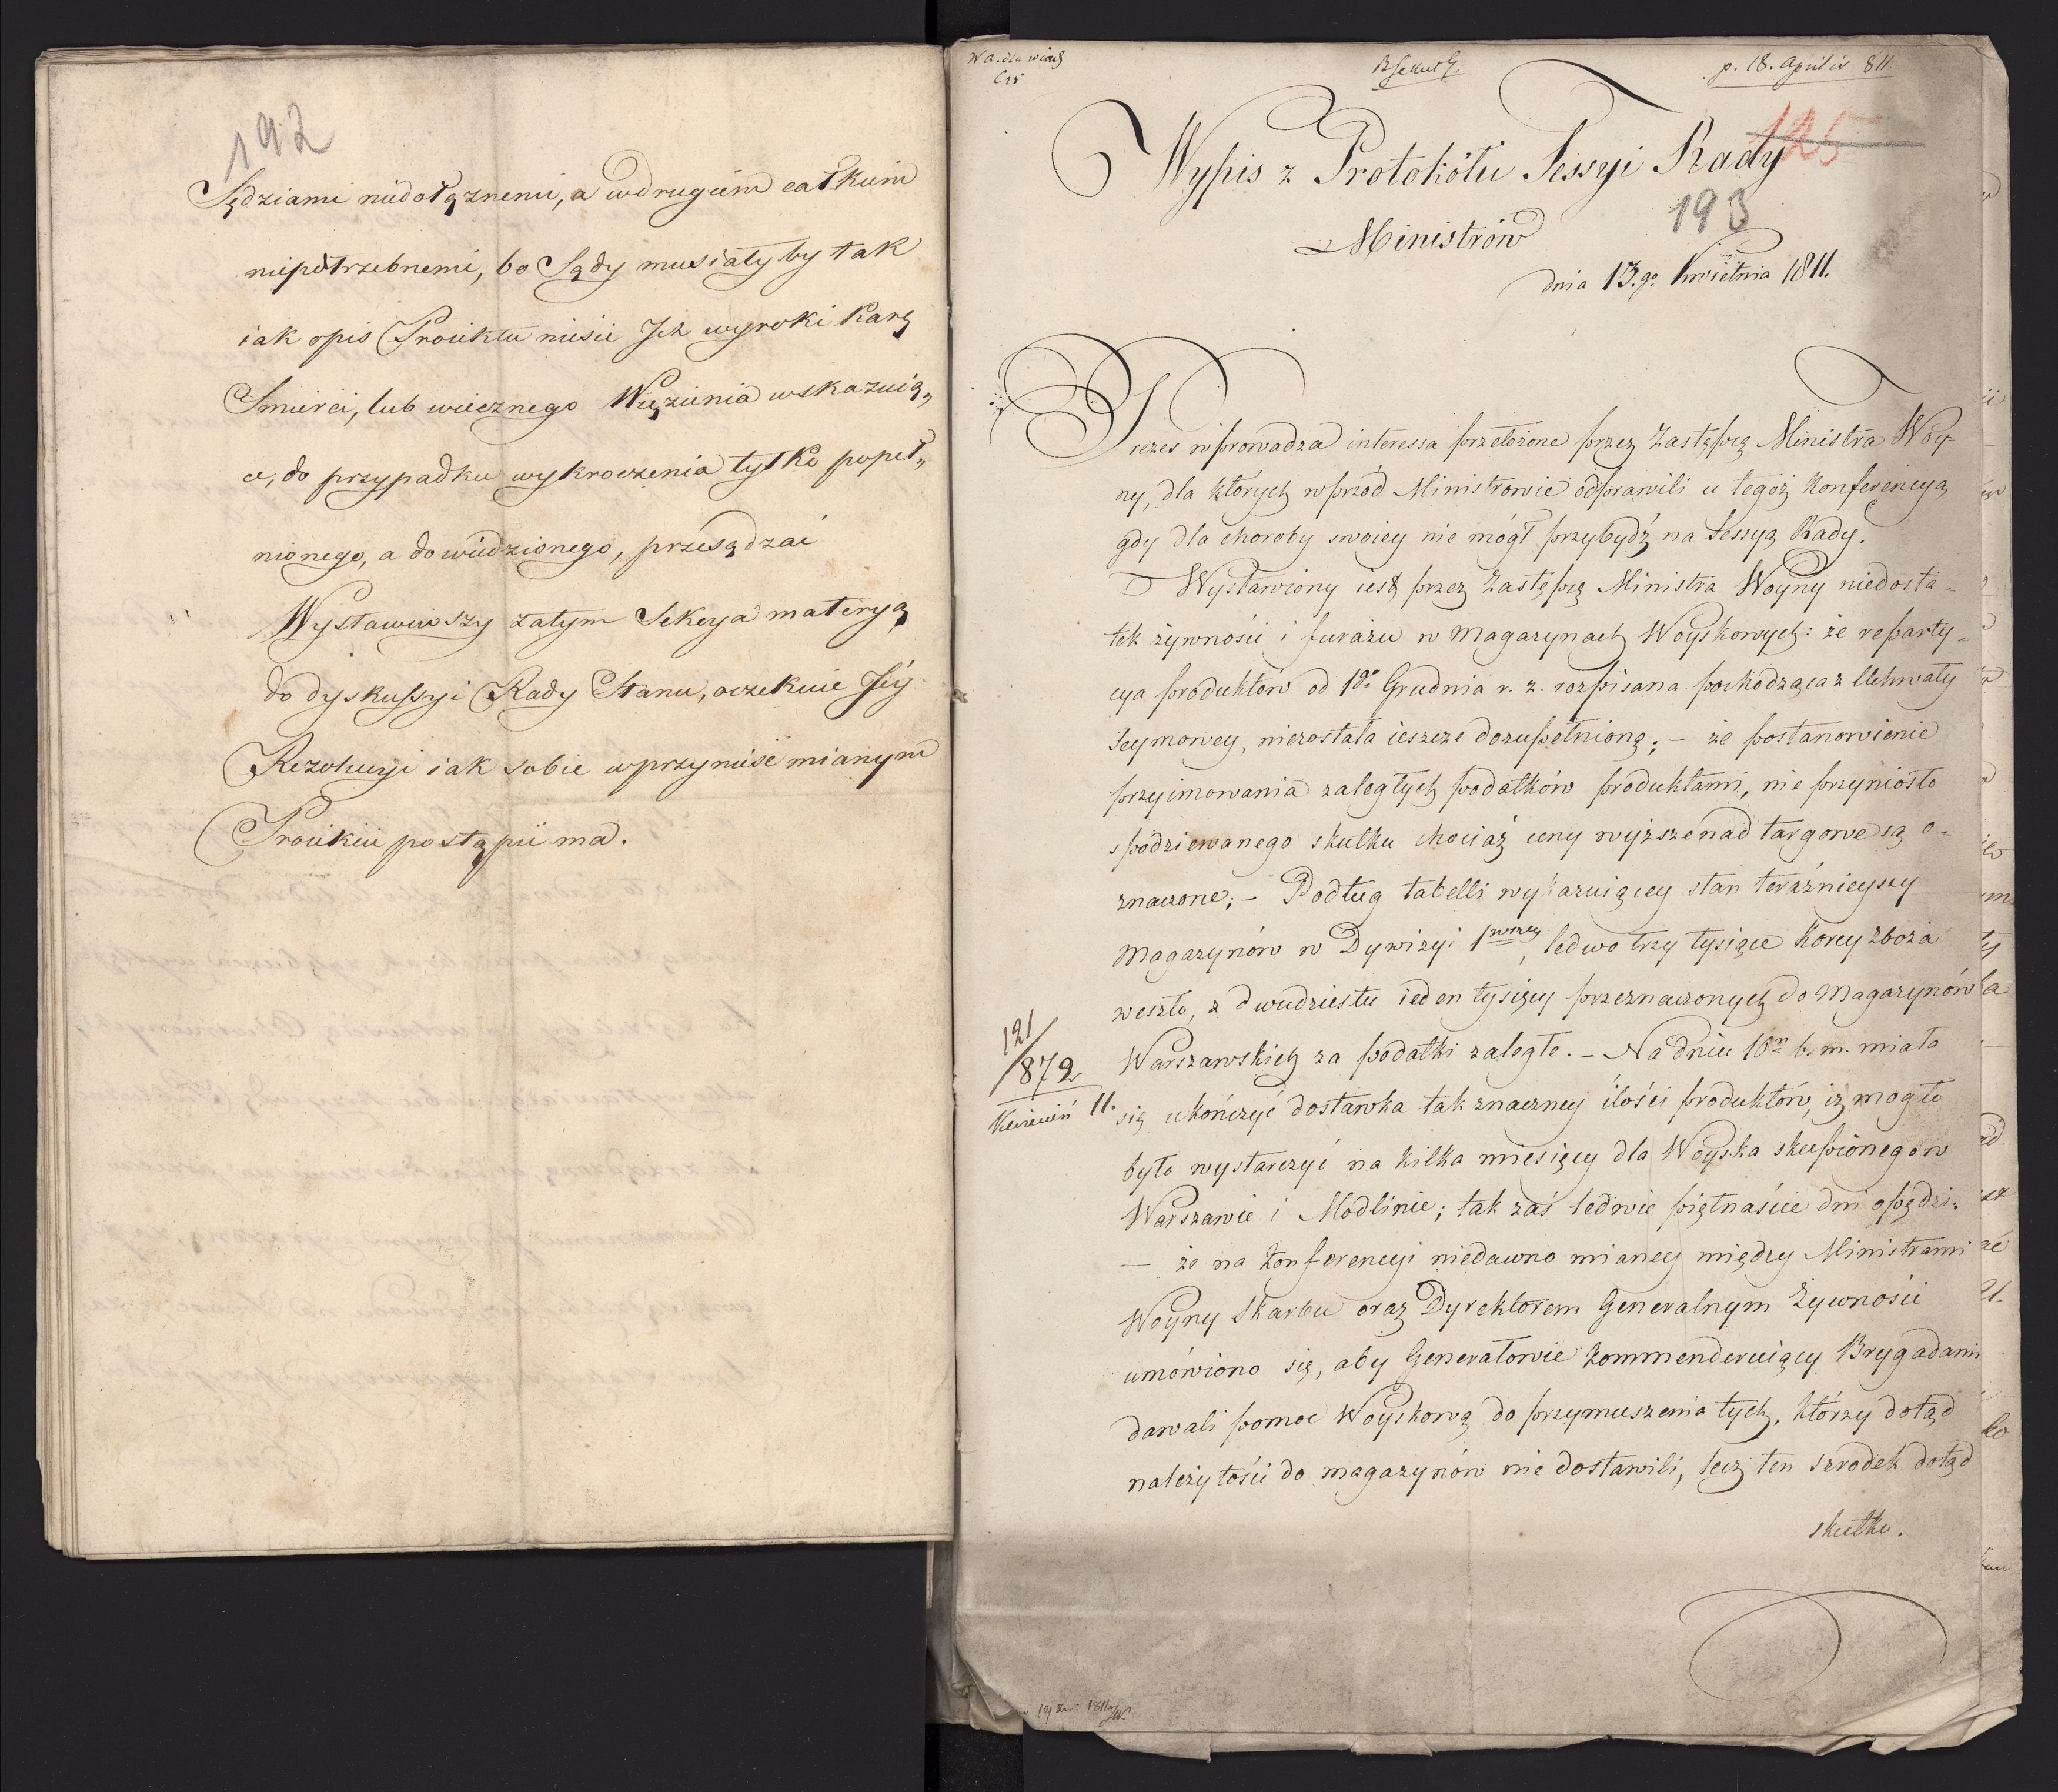 192
Sędziami niedołęznemi, a wdrugiem całkiem
niepotrzebnemi, bo Sądy musiałyby tak
iak opis Proiektu niesie Ich wyroki Karę
Smierci, lub wiecznego Więzienia wskazuią„
ce, do przypadku wykroczenia tylko popeł„
nionego, a dowiedzionego, przesądzać
Wystawiwszy zatym Sekcya materyą
do dyskussyi Rady Stanu, oczekuie Jéy
Rezolucyi iak sobie wprzyniesć mianym
Proiekcie postąpić ma.
p. 18. Aprilis 811.
125
Wypis z Protokółu Sessyi Rady
193
Ministrów
dnia 13.go Kwietnia 1811.
Prezes wprowadza interessa przełożone przez Zastępcę Ministra Woy-
ny, dla których wprzód Ministrowie odprawili u tegoż Konferencyą
gdy dla choroby swoiey nie mógł przybydź na Sessyą Rady.
Wystawiony iest przez Zastępcę Ministra Woyny niedosta-
tek żywności i furażu w Magazynach Woyskowych: że reparty-
cya produktów od 1go Grudnia r. z. rozpisana pochodząca z Uchwały
Seymowey, niezostała ieszcze dozupełnioną; – że postanowienie
przyimowania zaległych podatków produktami, nie przyniosło
spodziewanego skutku chociaż ceny wyższe nad targowe są o-
znaczone; – Podług tabelli wykazuiącey stan teraźnieyszy
Magazynów w Dywizyi 1wszey, ledwo trzy tysiące Korcy zboża
weszło, z dwudziestu ieden tysięcy przeznaczonych do Magazynów
121/872
Kwiecień 11.
Warszawskich za podatki zaległe. – Na dniu 10m b. m. miała
się ukończyć dostawka tak znaczney ilości produktów, iż mogło
było wystarczyć na kilka miesięcy dla Woyska skupionego w
Warszawie i Modlinie; tak zaś ledwie piętnaście dni opędzi:
— że na Konferencyi niedawno mianey między Ministrami
Woyny Skarbu oraz Dyrektorem Generalnym Żywności
umówiono się, aby Generałowie kommenderuiący Brygadami
dawali pomoc Woyskową do przymuszenia tych, którzy dotąd
należytości do magazynów nie dostawili, lecz ten srodek dotąd
skutku.